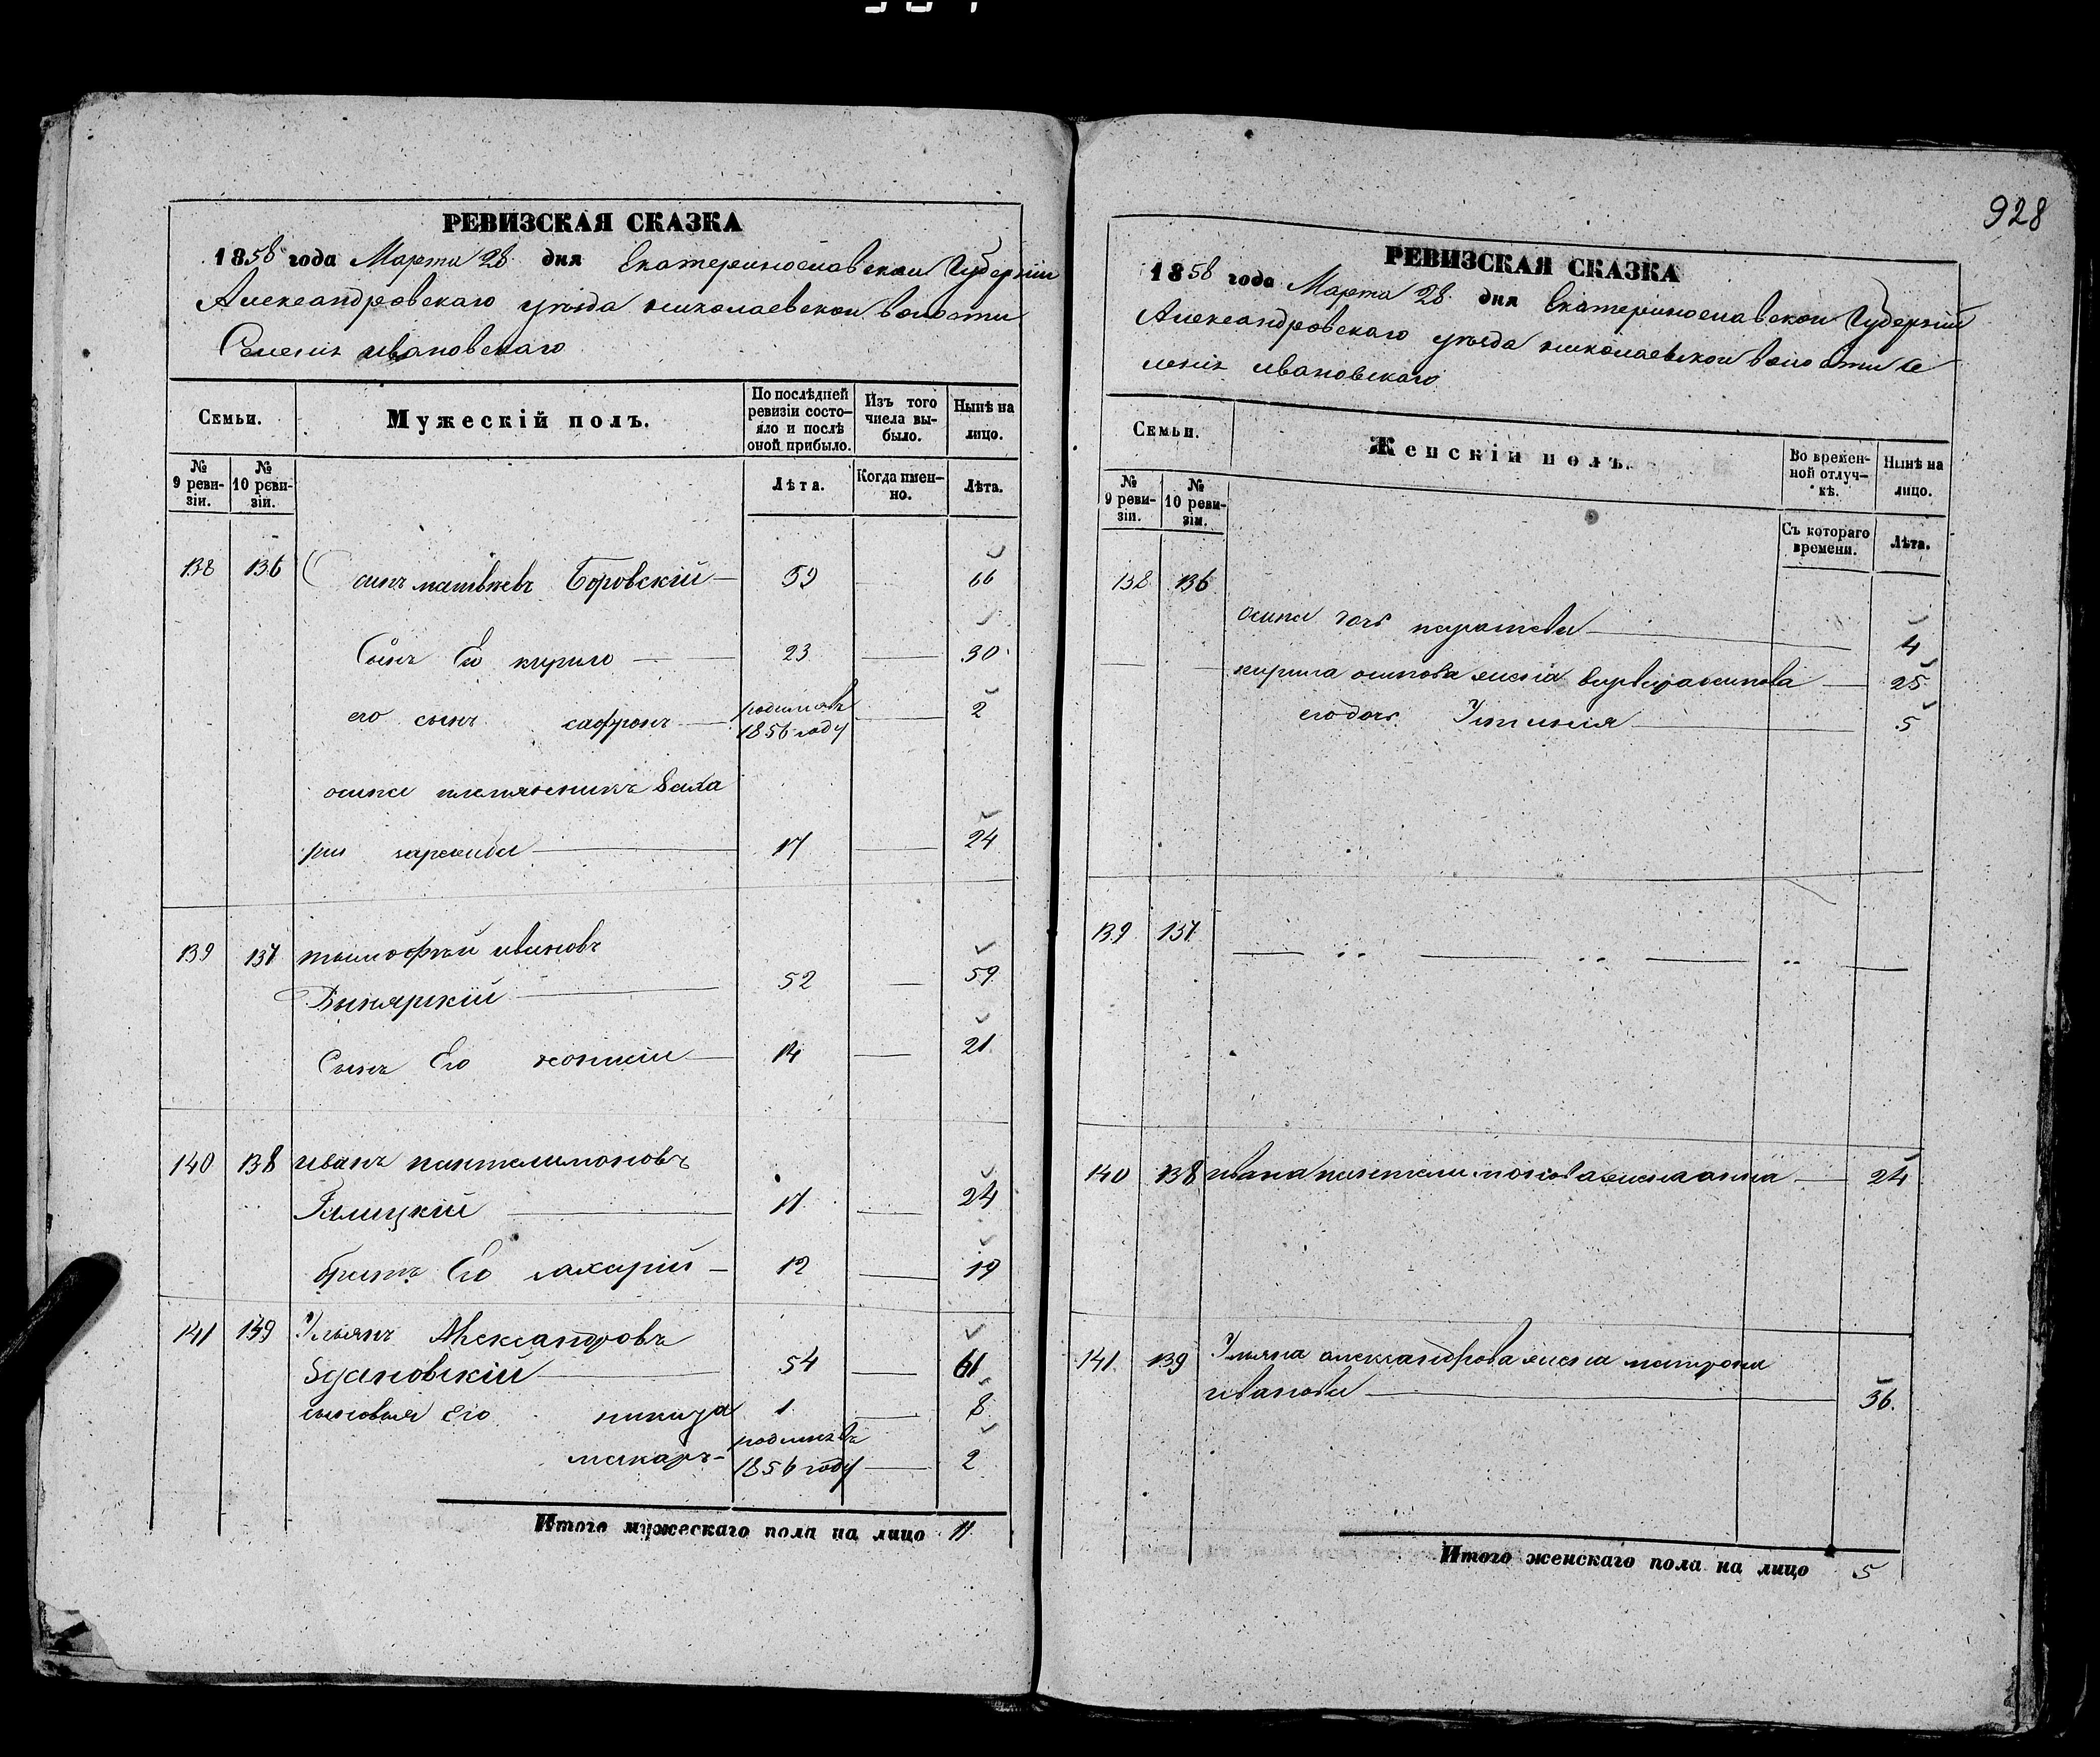 928
РЕВИЗСКАЯ СКАЗКА
1858 года Марта 28 дня Екатеринославской Губерніи
Александровскаго уѣзда николаевской волости
Селенія ивановскаго
Семьи.
Мужескій полъ.
По послѣдней ревизіи состо-
яло и послѣ
оной прибыло.
Изъ того
числа вы-
было.
Нынѣ на
лицо.
№
9 реви-
зіи.
№
10 реви-
зіи.
Лѣта.
Когда имен-
но.
Лѣта.
138 136 матвѣевъ Боровскій 59 66
Сынъ Его кирило 23 30
его сынъ сафронъ родился въ 1856 году 2
осипа племянникъ Заха
рій 17 24
139 137 тимофѣй ивановъ
52 59
Сынъ Его 14 21
140 138 иванъ пантелимоновъ
Галицкій 17 24
братъ Его захарій 12 19
141 139 Ульянъ Александровъ
Здановскій 54 61
сыновья Его никита 1 8
макаръ родился въ 1856 году 2
Итого мужескаго пола на лицо 11
РЕВИЗСКАЯ СКАЗКА
1858 года Марта 28 дня Екатеринославской Губерніи
Александровскаго уѣзда николаевской волости Се
ленія ивановскаго
Семьи.
Женскій полъ.
Во времен-
ной отлуч-
кѣ.
Нынѣ на
лицо.
№
9 реви-
зіи.
№
10 реви-
зіи.
Съ котораго
времени.
Лѣта.
138 136
осипа дочь 4
кирила осипова жена варвара осипова 25
его дочь Устинія 5
139 137
140 138 ивана пантелимонова жена анна 24
141 139 Ульяна александрова жена матрона
иванова 36
Итого женскаго пола на лицо 5